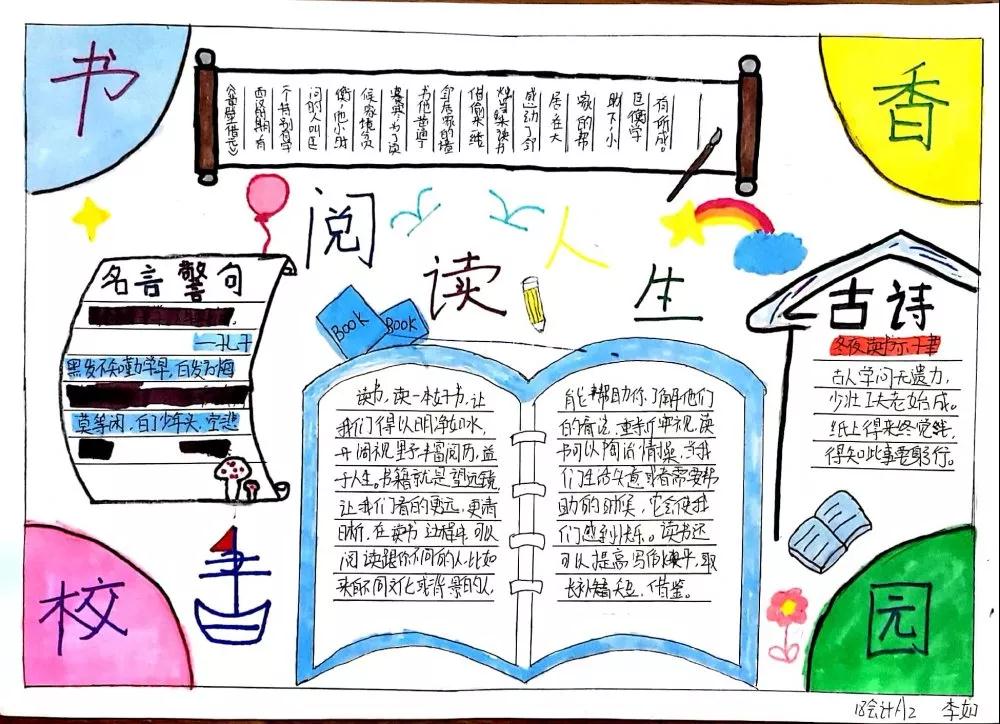 书
香
校
园
阅
读
人
生
《凿壁借光》
西汉时期,有
个特别有学
问的人叫匡
衡,他小时
候家境贫
寒,为了读
书他凿通了
邻居家的墙
借偷来一缕
烛光读书
感动了邻
居,在大
家的帮
助下,小
匡衡学
有所成。
名言警句
—孔子
黑发不知勤学早,白发方悔
莫等闲,白了少年头,空悲
BOOK
BOOK
读书,读一本好书,让
我们得以明净如水,
开阔视野,丰富阅历,益
于人生。书籍就是望远镜
让我们看的更远,更清
晰,在读书过程中,可以
阅读跟你不同的人,比如
来自不同文化或背景的人,
能帮助你了解他们
的看法,重新审视,读
书可以陶冶情操,当我
们生活失意或者需要帮
助的时候,它会使我
们感到快乐。读书还
可以提高写作水平,取
长补短,借鉴。
古诗
冬夜读书示子聿
古人学问无遗力,
少壮工夫老始成。
纸上得来终觉浅,
得知此事要躬行。
18会计A2 李如